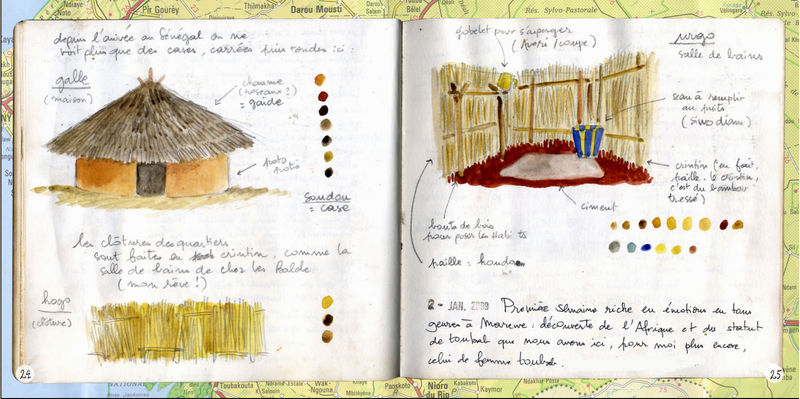 depuis l'arrivée au Sénégal on ne
voit plus que des cases, carrées puis rondes ici :
galle
(maison)
chaume
(roseaux ?)
= gaide
poto
poto
soudou
= case
les clôtures des quartiers
sont faites au crintin, comme la
salle de bains de chez les Balde
(mon rêve !)
hogo
(clôture)
24
gobelet pour s'asperger
(/coupe)
salle de bains
seau à remplir
au puits
(siwo diam)
crintin (en fait,
paille. le crintin,
c'est du bambou
tressé)
ciment
bouts de bois
pour poser les habits
paille = houdo
2 - JAN. 2009 Première semaine riche en émotions en tous
genres à : découverte de l'Afrique et du statut
de toubab que nous avons ici, pour moi plus encore,
celui de femme toubab.
25
Pir Gourèy
Thilmakha
Darou Mousti
Rés. Sylvo-Pastorale
NATIONAL
Toubakouta
Ndiama-Escale
Wak-
Ngouna
Paoskoto
Nioro
du Rip
Kabakoto
Kaymor
Ndakhar-Poste